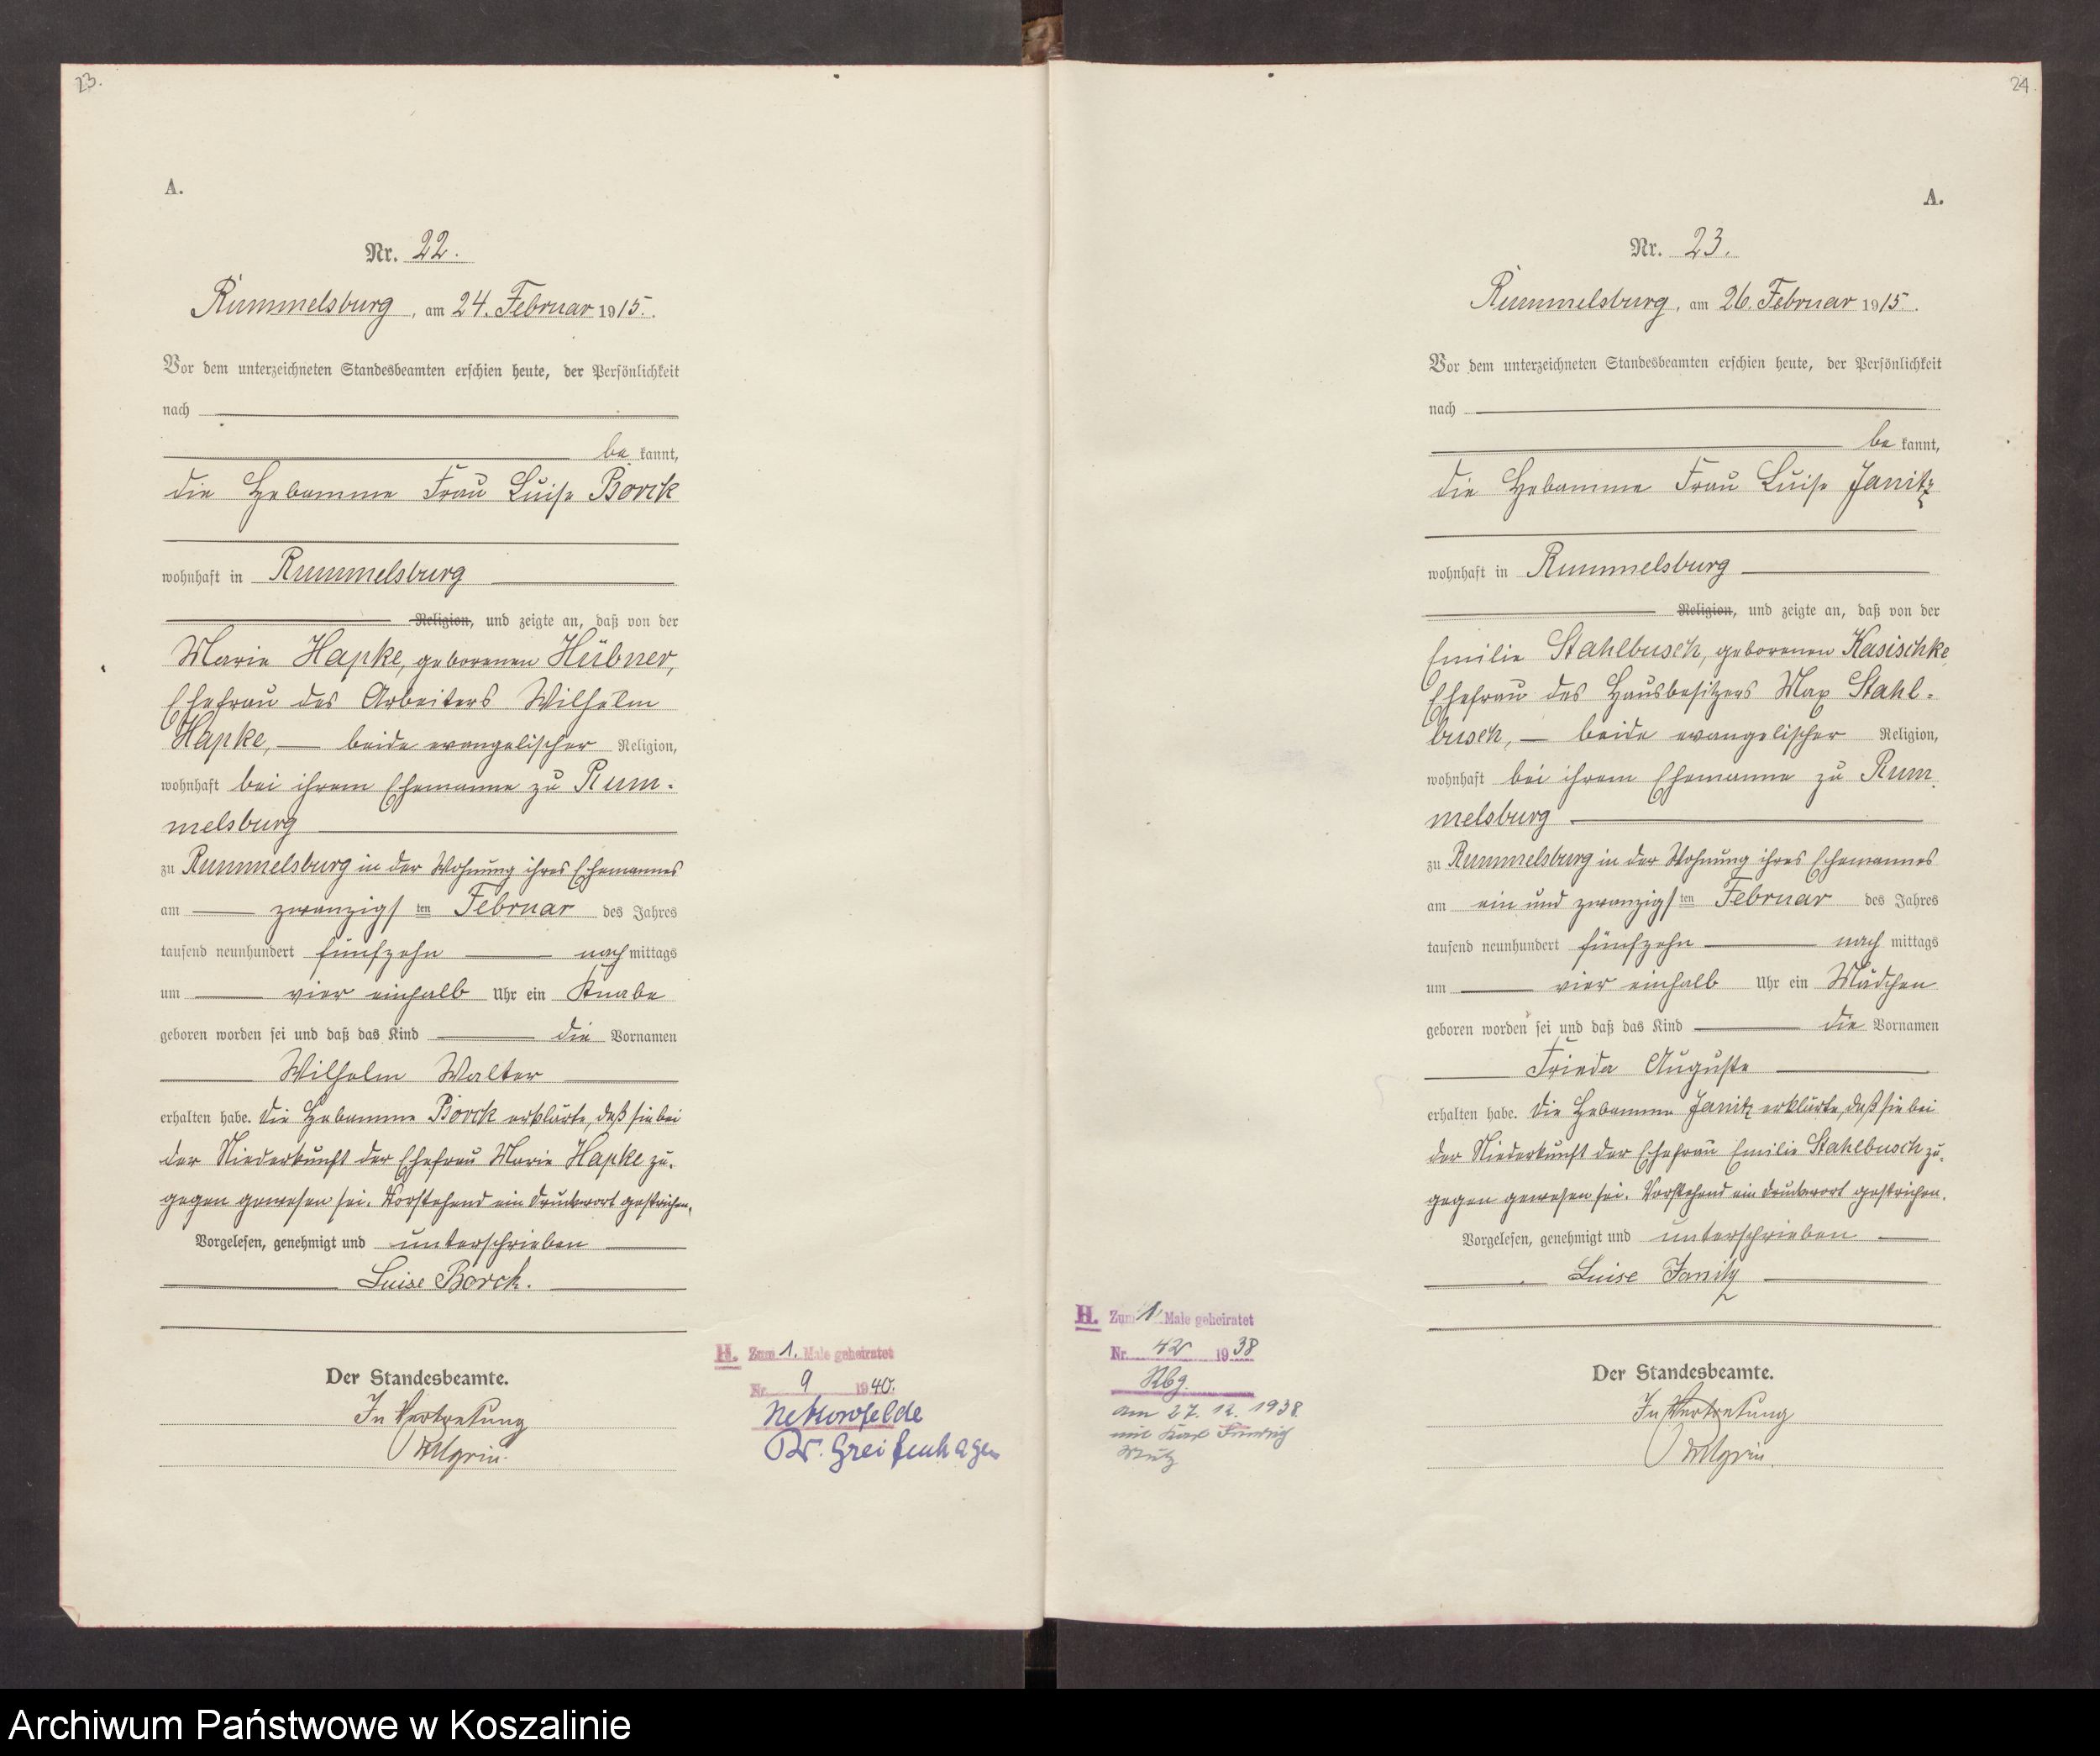 23.
A.
Nr. 22.
Rummelsburg, am 24. Februar 1915.
Vor dem unterzeichneten Standesbeamten erschien heute, der Persönlichkeit
nach
be kannt,
die Hebamme Frau Luise Borck
wohnhaft in Rummelsburg
Religion, und zeigte an, daß von der
Marie Hapke, geborenen Hübner,
Ehefrau des Arbeiters Wilhelm
Hapke, — beide evangelischer Religion,
wohnhaft bei ihrem Ehemanne zu Rum-
melsburg
zu Rummelsburg in der Wohnung ihres Ehemannes
am — zwanzigsten Februar des Jahres
tausend neunhundert fünfzehn — nachmittags
um — vier einhalb Uhr ein Knabe
geboren worden sei und daß das Kind — die Vornamen
Wilhelm Walter
erhalten habe. Die Hebamme Borck erklärte, daß sie bei
der Niederkunft der Ehefrau Marie Hapke zu-
gegen gewesen sei. Vorstehend ein Druckwort gestrichen.
Vorgelesen, genehmigt und unterschrieben
Luise Borck.
Der Standesbeamte.
In Vertretung
H. Zum 1. Male geheiratet
Nr. 9 1940.
Kr. Greifenhagen
24.
A.
Nr. 23.
Rummelsburg, am 26. Februar 1915.
Vor dem unterzeichneten Standesbeamten erschien heute, der Persönlichkeit
nach
be kannt,
die Hebamme Frau Luise Janitz
wohnhaft in Rummelsburg
Religion, und zeigte an, daß von der
Emilie Stahlbusch, geborenen Kasischke,
Ehefrau des Hausbesitzers Max Stahl-
busch, — beide evangelischer Religion,
wohnhaft bei ihrem Ehemanne zu Rum-
melsburg
zu Rummelsburg in der Wohnung ihres Ehemannes
am ein und zwanzigsten Februar des Jahres
tausend neunhundert fünfzehn — nach mittags
um — vier einhalb Uhr ein Mädchen
geboren worden sei und daß das Kind — die Vornamen
Frieda Auguste
erhalten habe. Die Hebamme Janitz erklärte, daß sie bei
der Niederkunft der Ehefrau Emilie Stahlbusch zu-
gegen gewesen sei. Vorstehend ein Druckwort gestrichen.
Vorgelesen, genehmigt und unterschrieben
Luise Janitz
Der Standesbeamte.
In Vertretung
H. Zum 1. Male geheiratet
Nr. 42 1938
Rbg.
am 27. 12. 1938
mit Karl Friedrich
Archiwum Państwowe w Koszalinie